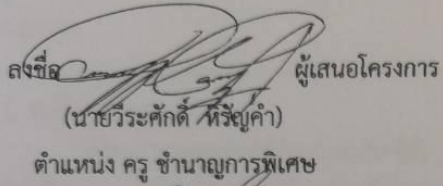 ลงชื่อ ผู้เสนอโครงการ
(นายวีระศักดิ์ หิรัญคำ)
ตำแหน่ง ครู ชำนาญการพิเศษ